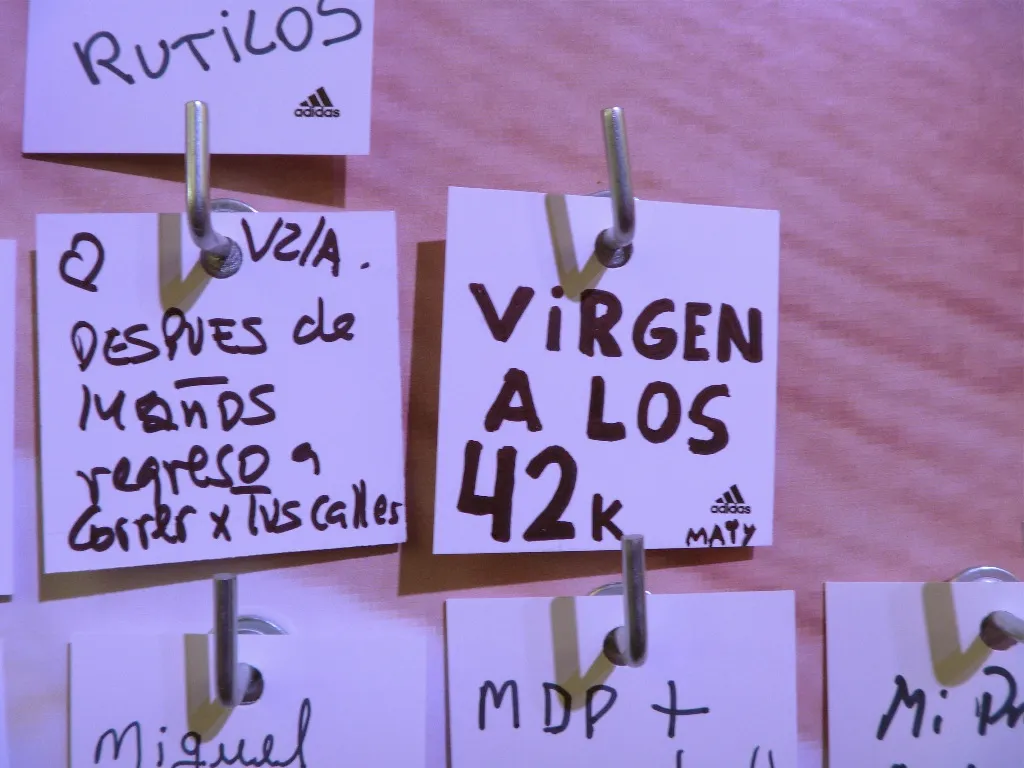 RUTiLOS
adidas
VZ/A.
DESPUES de
14 años
regreso a
Correr x Tus calles
ViRGEN
A LOS
42K
adidas
MAiY
Miguel
MDP +
Mi